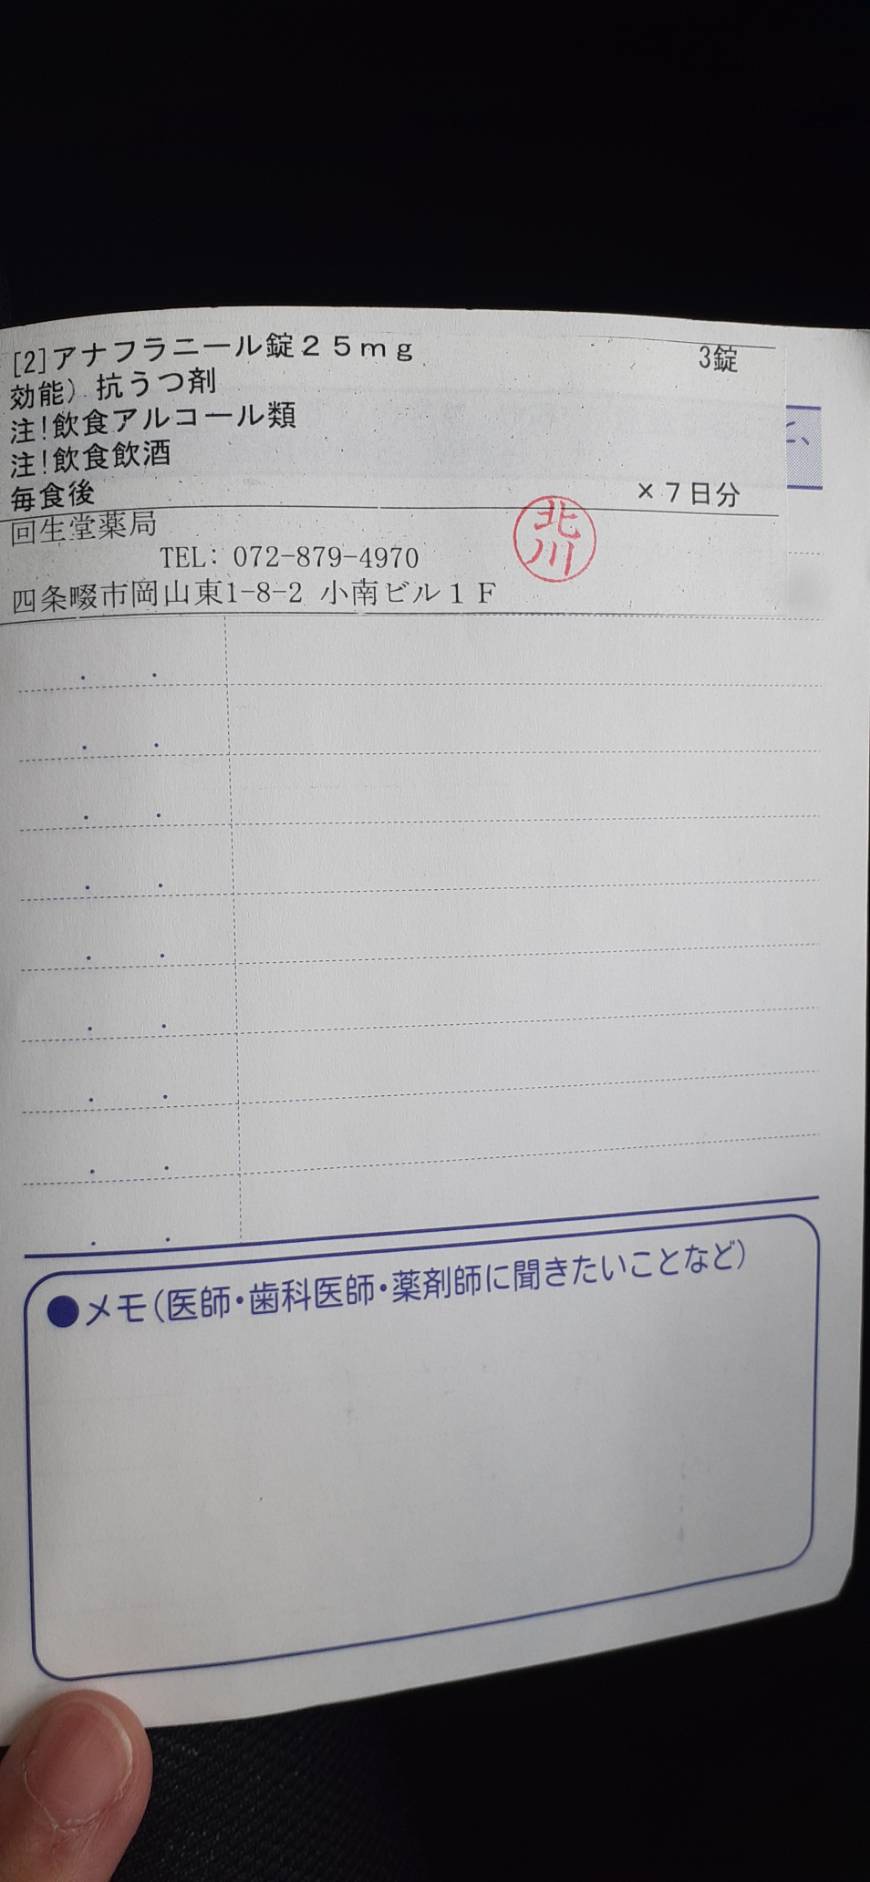 [2]アナフラニール錠25mg 3錠
効能）抗うつ剤
注!飲食アルコール類
注!飲食飲酒
毎食後 ×7日分
回生堂薬局
TEL: 072-879-4970
北川
四条畷市岡山東1-8-2 小南ビル1F
と、
●メモ（医師・歯科医師・薬剤師に聞きたいことなど）